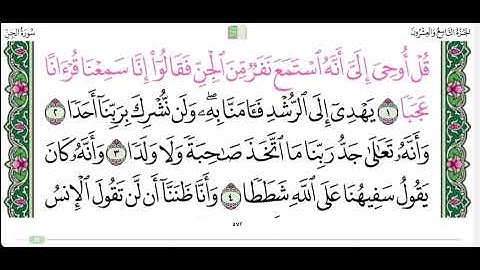 سُورَةُ الجِنّ
الجُزءُ التَّاسِعُ وَالعِشْرُونَ
قُلْ أُوحِىَ إِلَىَّ أَنَّهُ ٱسْتَمَعَ نَفَرٌ مِّنَ ٱلْجِنِّ فَقَالُوٓا۟ إِنَّا سَمِعْنَا قُرْءَانًا
عَجَبًا ١ يَهْدِىٓ إِلَى ٱلرُّشْدِ فَـَٔامَنَّا بِهِۦ وَلَن نُّشْرِكَ بِرَبِّنَآ أَحَدًا ٢
وَأَنَّهُۥ تَعَٰلَىٰ جَدُّ رَبِّنَا مَا ٱتَّخَذَ صَٰحِبَةً وَلَا وَلَدًا ٣ وَأَنَّهُۥ كَانَ
يَقُولُ سَفِيهُنَا عَلَى ٱللَّهِ شَطَطًا ٤ وَأَنَّا ظَنَنَّآ أَن لَّن تَقُولَ ٱلْإِنسُ
٥٧٢